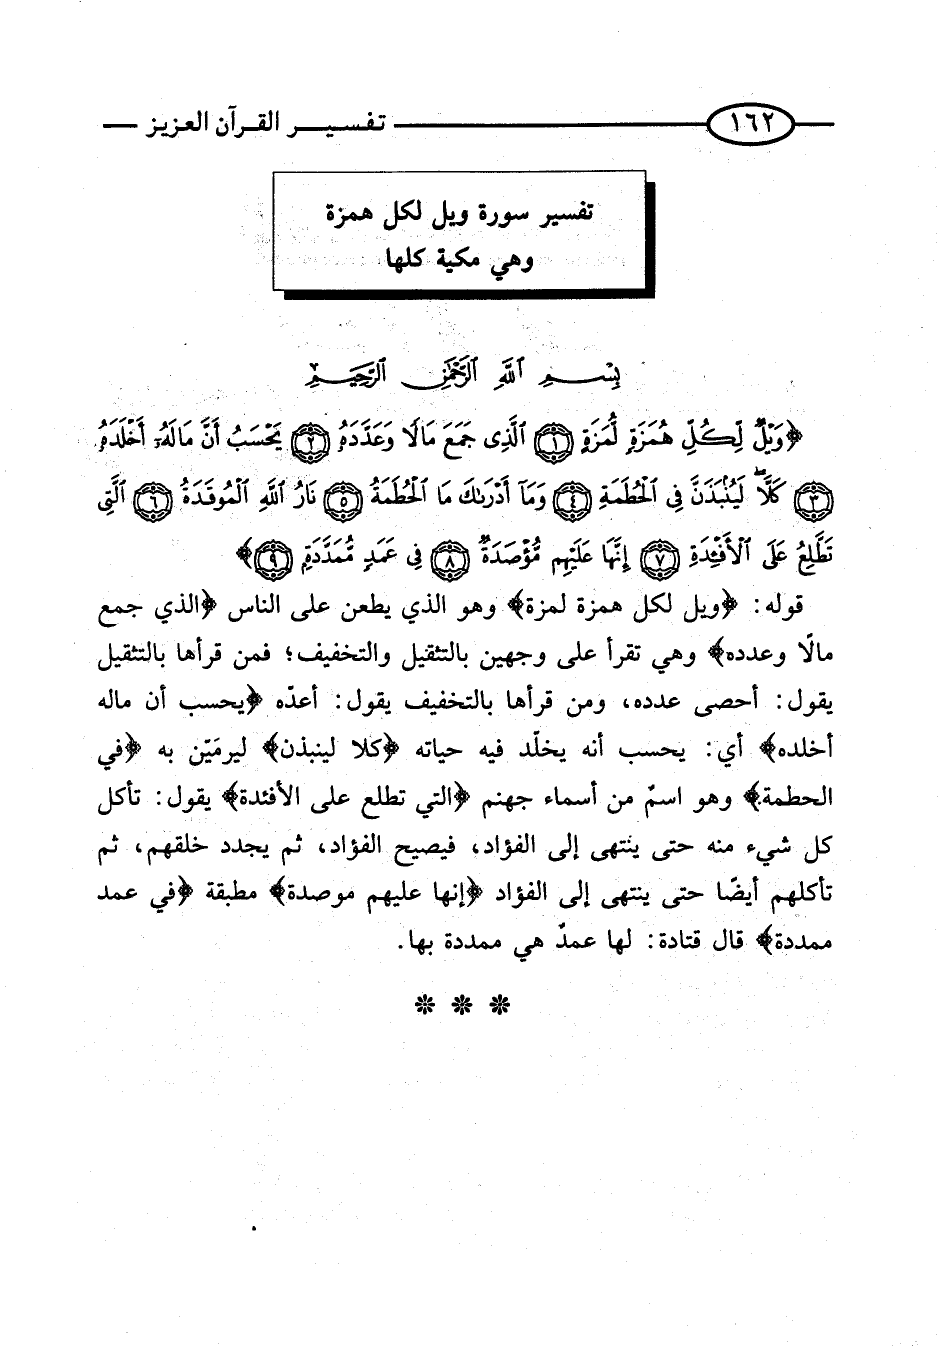 ١٦٢ تفسير القرآن العزيز
تفسير سورة ويل لكل همزة
وهي مكية كلها
بِسْمِ ٱللَّهِ ٱلرَّحْمَٰنِ ٱلرَّحِيمِ
﴿وَيْلٌ لِّكُلِّ هُمَزَةٍ لُّمَزَةٍ ١ ٱلَّذِى جَمَعَ مَالًا وَعَدَّدَهُۥ ٢ يَحْسَبُ أَنَّ مَالَهُۥٓ أَخْلَدَهُۥ
٣ كَلَّا ۖ لَيُنۢبَذَنَّ فِى ٱلْحُطَمَةِ ٤ وَمَآ أَدْرَىٰكَ مَا ٱلْحُطَمَةُ ٥ نَارُ ٱللَّهِ ٱلْمُوقَدَةُ ٦ ٱلَّتِى
تَطَّلِعُ عَلَى ٱلْأَفْـِٔدَةِ ٧ إِنَّهَا عَلَيْهِم مُّؤْصَدَةٌ ٨ فِى عَمَدٍ مُّمَدَّدَةٍ ٩﴾
قوله: ﴿ويل لكل همزة لمزة﴾ وهو الذي يطعن على الناس ﴿الذي جمع
مالًا وعدده﴾ وهي تقرأ على وجهين بالتثقيل والتخفيف؛ فمن قرأها بالتثقيل
يقول: أحصى عدده، ومن قرأها بالتخفيف يقول: أعدّه ﴿يحسب أن ماله
أخلده﴾ أي: يحسب أنه يخلّد فيه حياته ﴿كلا لينبذن﴾ ليرميّن به ﴿في
الحطمة﴾ وهو اسمٌ من أسماء جهنم ﴿التي تطلع على الأفئدة﴾ يقول: تأكل
كل شيء منه حتى ينتهى إلى الفؤاد، فيصيح الفؤاد، ثم يجدد خلقهم، ثم
تأكلهم أيضًا حتى ينتهى إلى الفؤاد ﴿إنها عليهم موصدة﴾ مطبقة ﴿في عمد
ممددة﴾ قال قتادة: لها عمدٌ هي ممددة بها.
* * *